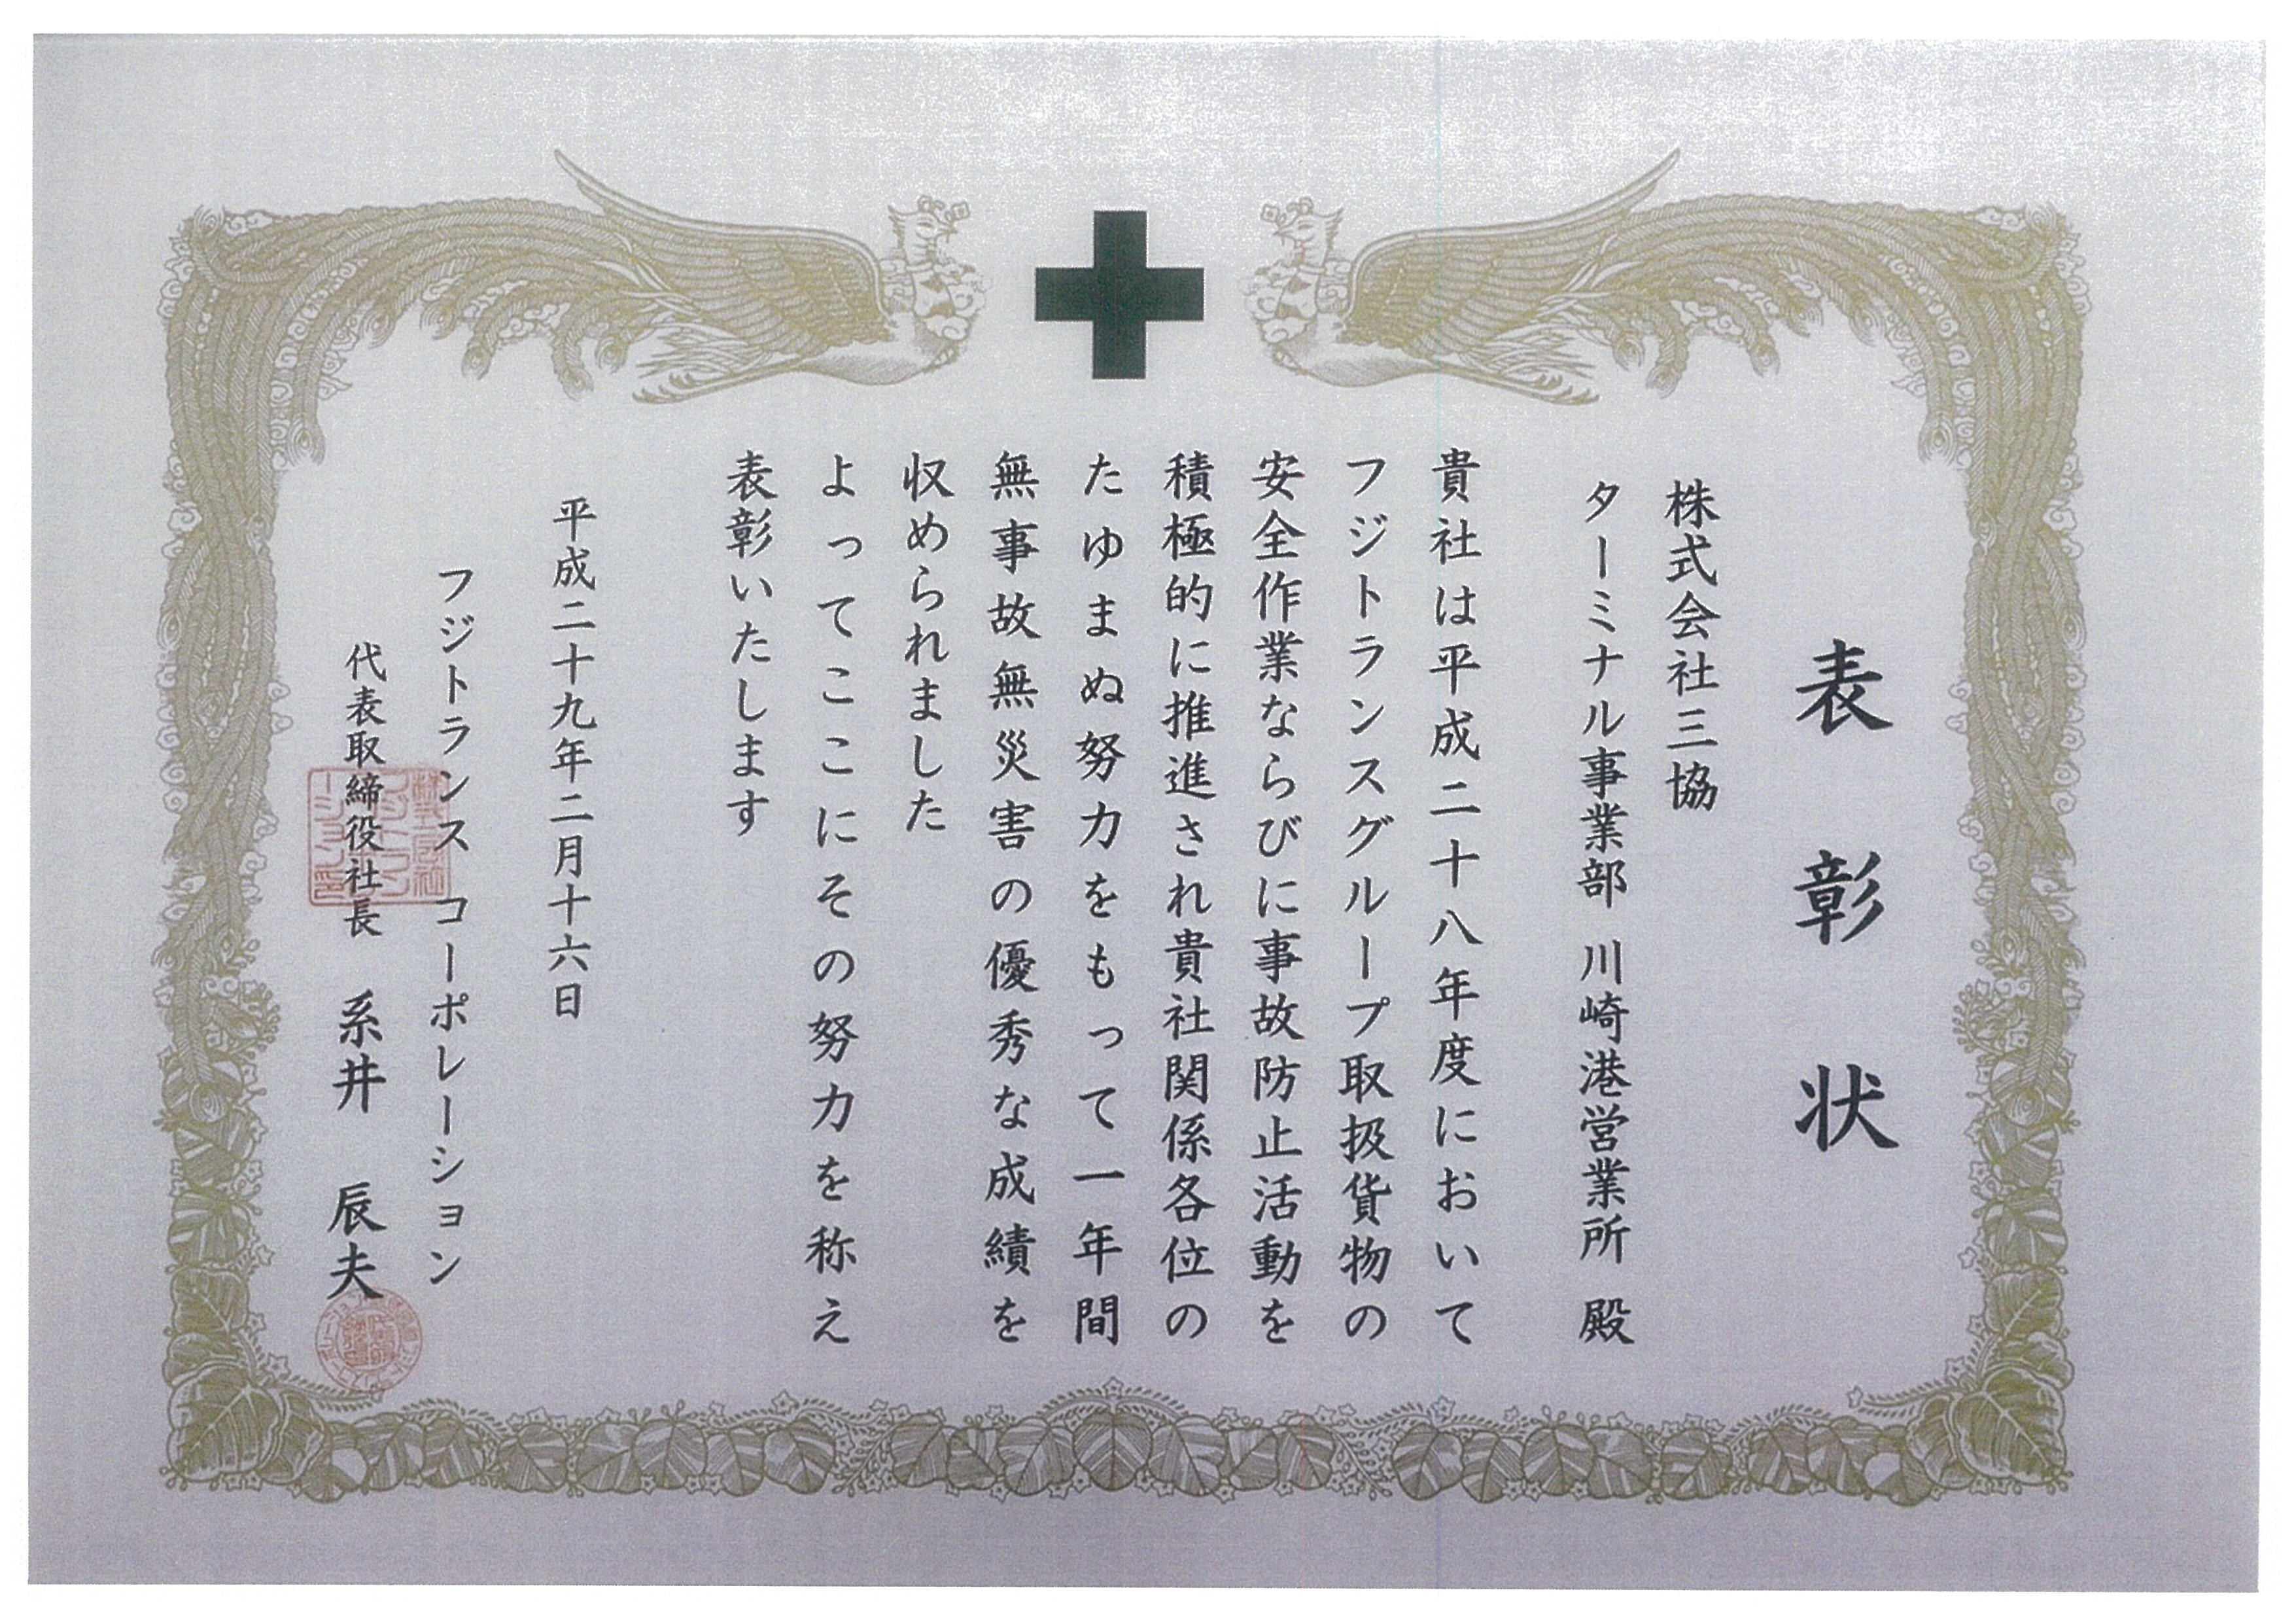 表彰状
株式会社三協
ターミナル事業部 川崎港営業所 殿
貴社は平成二十八年度において
フジトランスグループ取扱貨物の
安全作業ならびに事故防止活動を
積極的に推進され貴社関係各位の
たゆまぬ努力をもって一年間
無事故無災害の優秀な成績を
収められました
よってここにその努力を称え
表彰いたします
平成二十九年二月十六日
フジトランス コーポレーション
代表取締役社長 糸井 辰夫